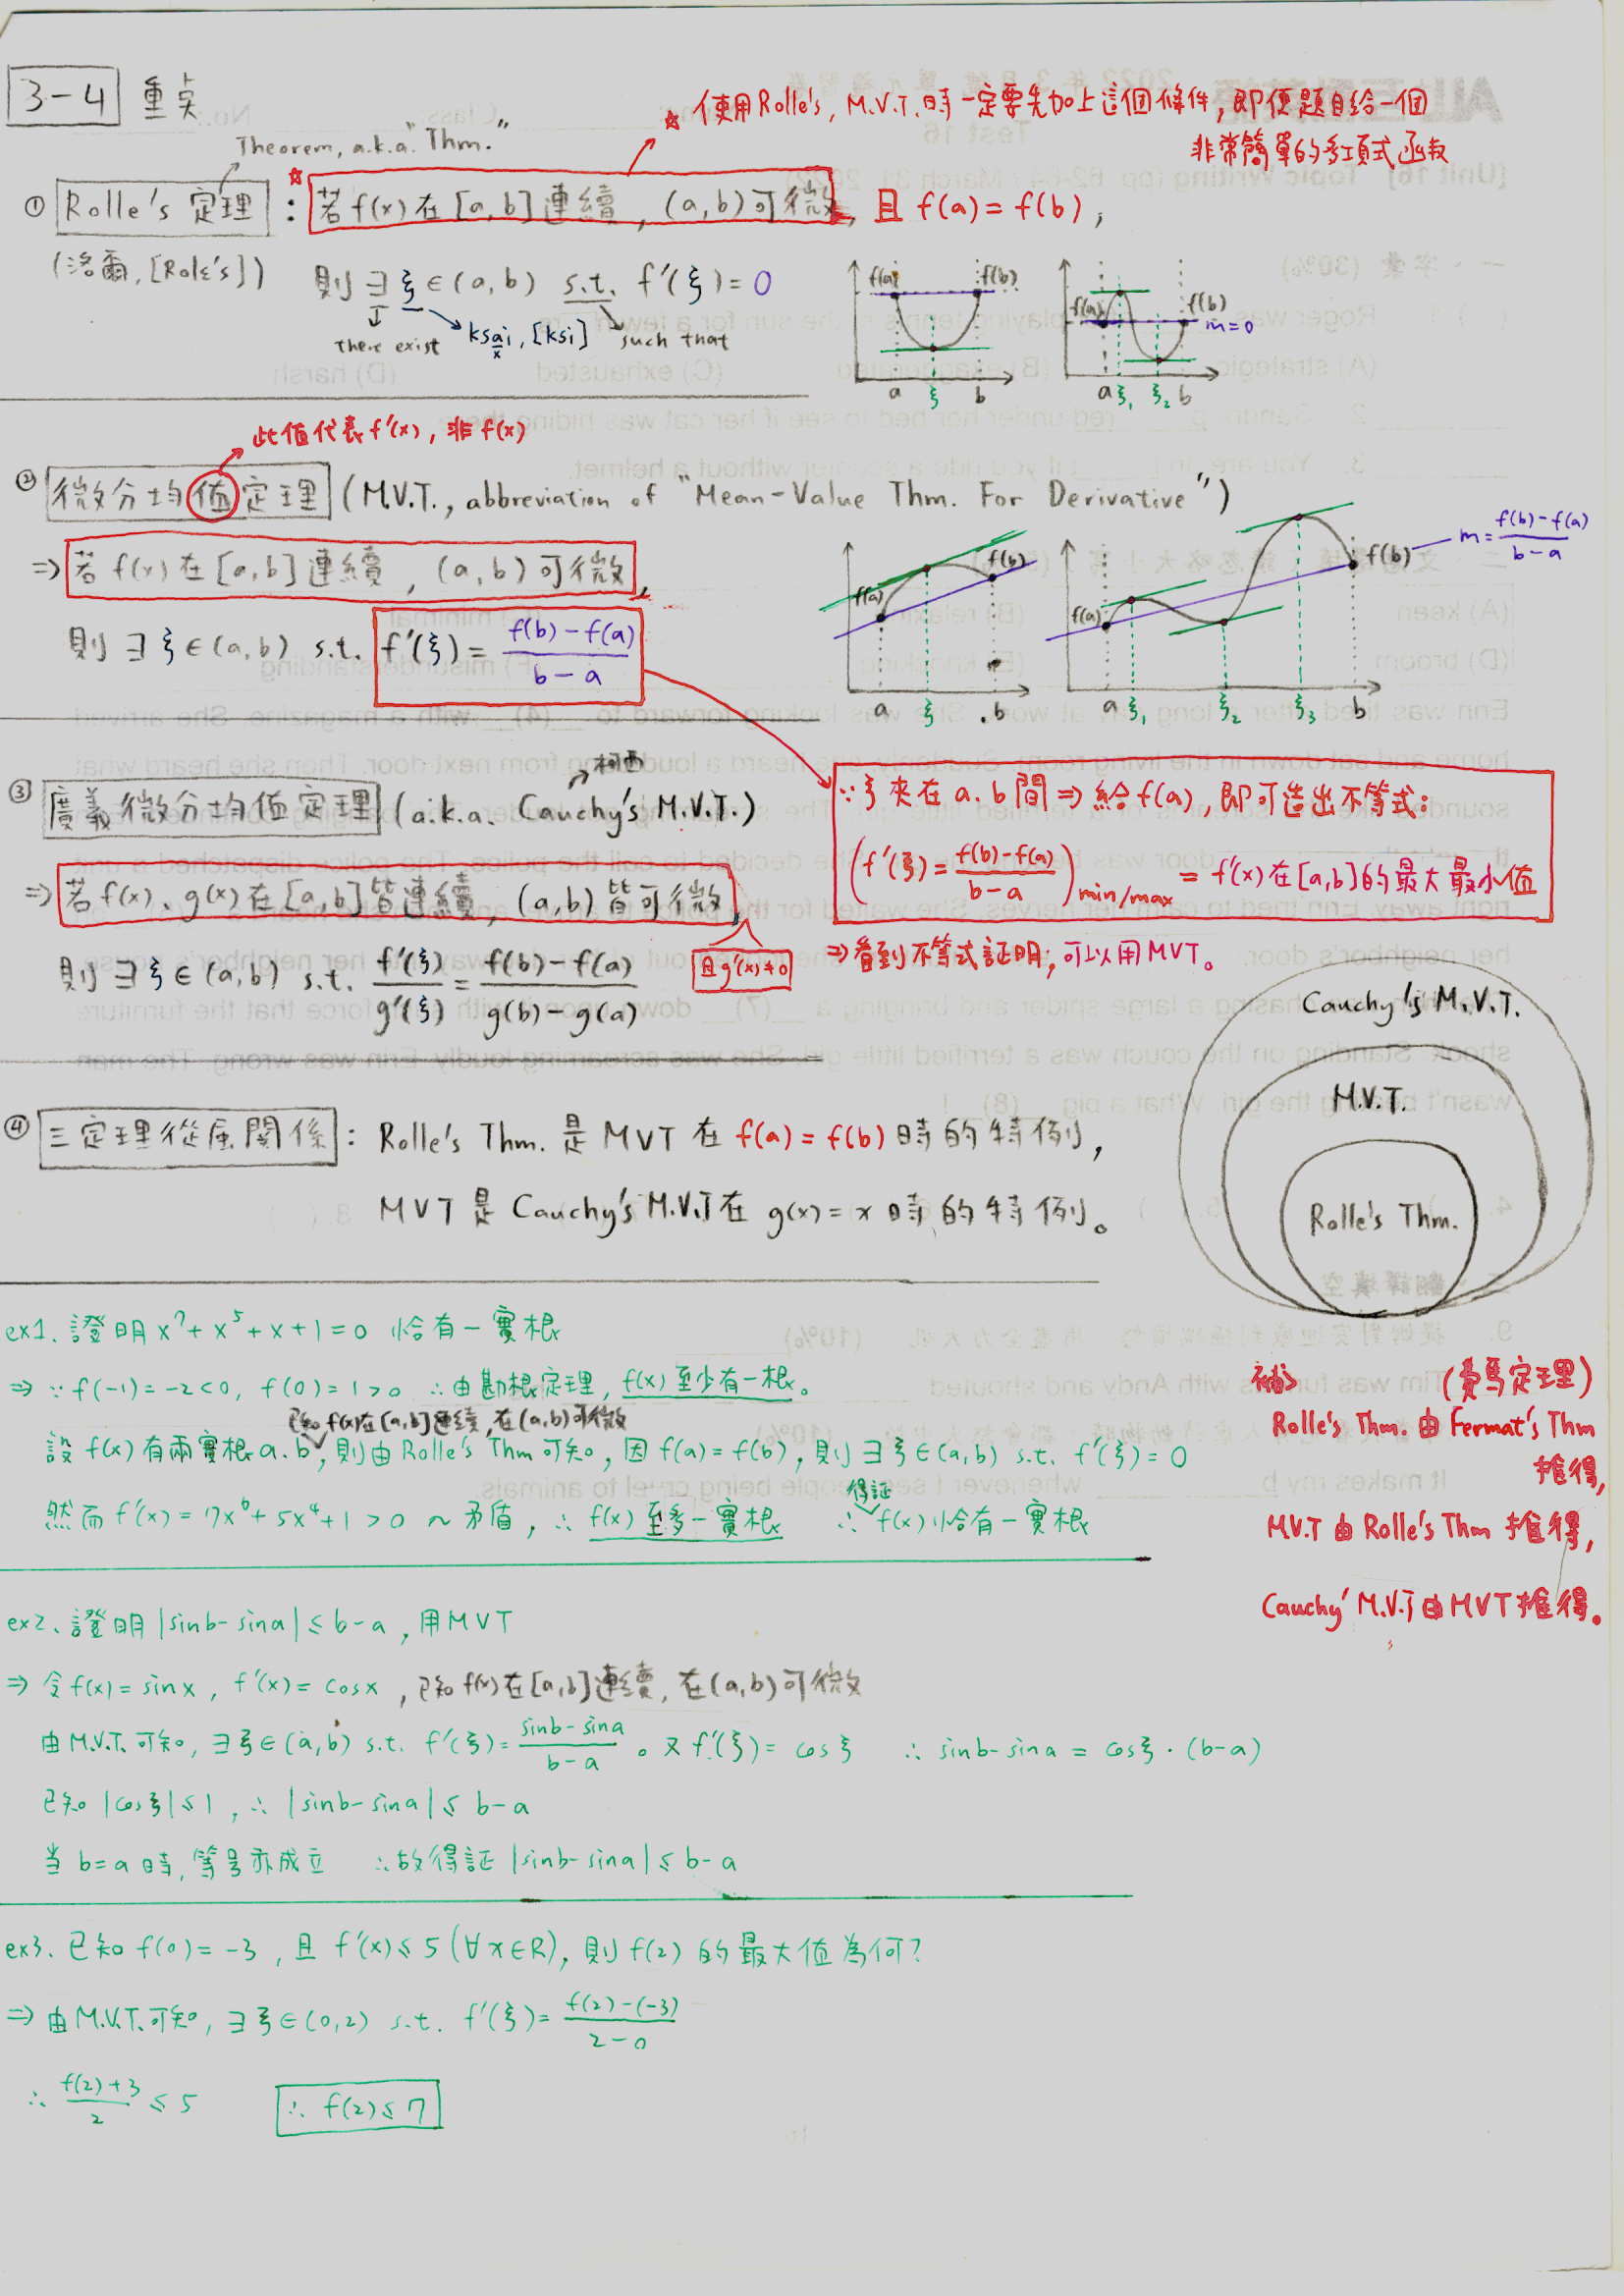 3-4 重点
☆ 使用Rolle's, M.V.T.時一定要先加上這個條件, 即便題目給一個
非常簡單的多項式函数
Theorem, a.k.a. "Thm."
① Rolle's 定理 : ☆ 若f(x)在[a,b]連續, (a,b)可微, 且 f(a)=f(b),
(洛爾, [Role's])
則 ∃ ξ ∈(a,b) s.t. f'(ξ)=0
there exist
ksai, [ksi]
such that
f(a) f(b)
a ξ b
f(a) f(b) m=0
a ξ₁ ξ₂ b
此值代表f'(x), 非f(x)
② 微分均值定理 (M.V.T., abbreviation of "Mean-Value Thm. For Derivative")
⇒ 若f(x)在[a,b]連續, (a,b)可微,
則 ∃ ξ∈(a,b) s.t. f'(ξ)= (f(b)-f(a))/(b-a)
f(a) f(b)
a ξ b
f(a) f(b) m=(f(b)-f(a))/(b-a)
a ξ₁ ξ₂ ξ₃ b
柯西
③ 廣義微分均值定理 (a.k.a. Cauchy's M.V.T.)
⇒ 若f(x)、g(x)在[a,b]皆連續, (a,b)皆可微,
且g'(x)≠0
則 ∃ ξ∈(a,b) s.t. f'(ξ)/g'(ξ) = (f(b)-f(a))/(g(b)-g(a))
∵ ξ夾在a.b間 ⇒ 給f(a), 即可造出不等式:
(f'(ξ)=(f(b)-f(a))/(b-a)) min/max = f'(x)在[a,b]的最大最小值
⇒ 看到不等式証明, 可以用MVT。
Cauchy's M.V.T.
M.V.T.
Rolle's Thm.
④ 三定理從屬關係 : Rolle's Thm. 是 MVT 在 f(a)=f(b)時的特例,
MVT 是 Cauchy's M.V.T在 g(x)=x 時的特例。
ex1. 證明 x⁷+x⁵+x+1=0 恰有一實根
⇒ ∵ f(-1)=-2<0, f(0)=1>0 ∴由勘根定理, f(x)至少有一根。
已知f(x)在[a,b]連續, 在(a,b)可微
設 f(x)有兩實根a.b, 則由Rolle's Thm可知, 因f(a)=f(b), 則 ∃ ξ∈(a,b) s.t. f'(ξ)=0
得証
然而 f'(x)=7x⁶+5x⁴+1>0 ~ 矛盾, ∴ f(x)至多一實根 ∴ f(x)恰有一實根
補>
(費馬定理)
Rolle's Thm. 由 Fermat's Thm
推得,
M.V.T 由 Rolle's Thm 推得,
Cauchy' M.V.T 由 MVT 推得。
ex2. 證明 |sinb-sina| ≤ b-a, 用MVT
⇒ 令f(x)=sinx, f'(x)=cosx, 已知f(x)在[a,b]連續, 在(a,b)可微
由M.V.T. 可知, ∃ ξ∈(a,b) s.t. f'(ξ)=(sinb-sina)/(b-a)。又f'(ξ)=cosξ ∴ sinb-sina = cosξ·(b-a)
已知 |cosξ|≤1, ∴ |sinb-sina| ≤ b-a
当 b=a 時, 等号亦成立 ∴故得証 |sinb-sina| ≤ b-a
ex3. 已知 f(0)=-3, 且 f'(x)≤5 (∀x∈R), 則 f(2) 的最大值為何?
⇒ 由M.V.T.可知, ∃ ξ∈(0,2) s.t. f'(ξ)=(f(2)-(-3))/(2-0)
∴ (f(2)+3)/2 ≤ 5 ∴ f(2)≤7